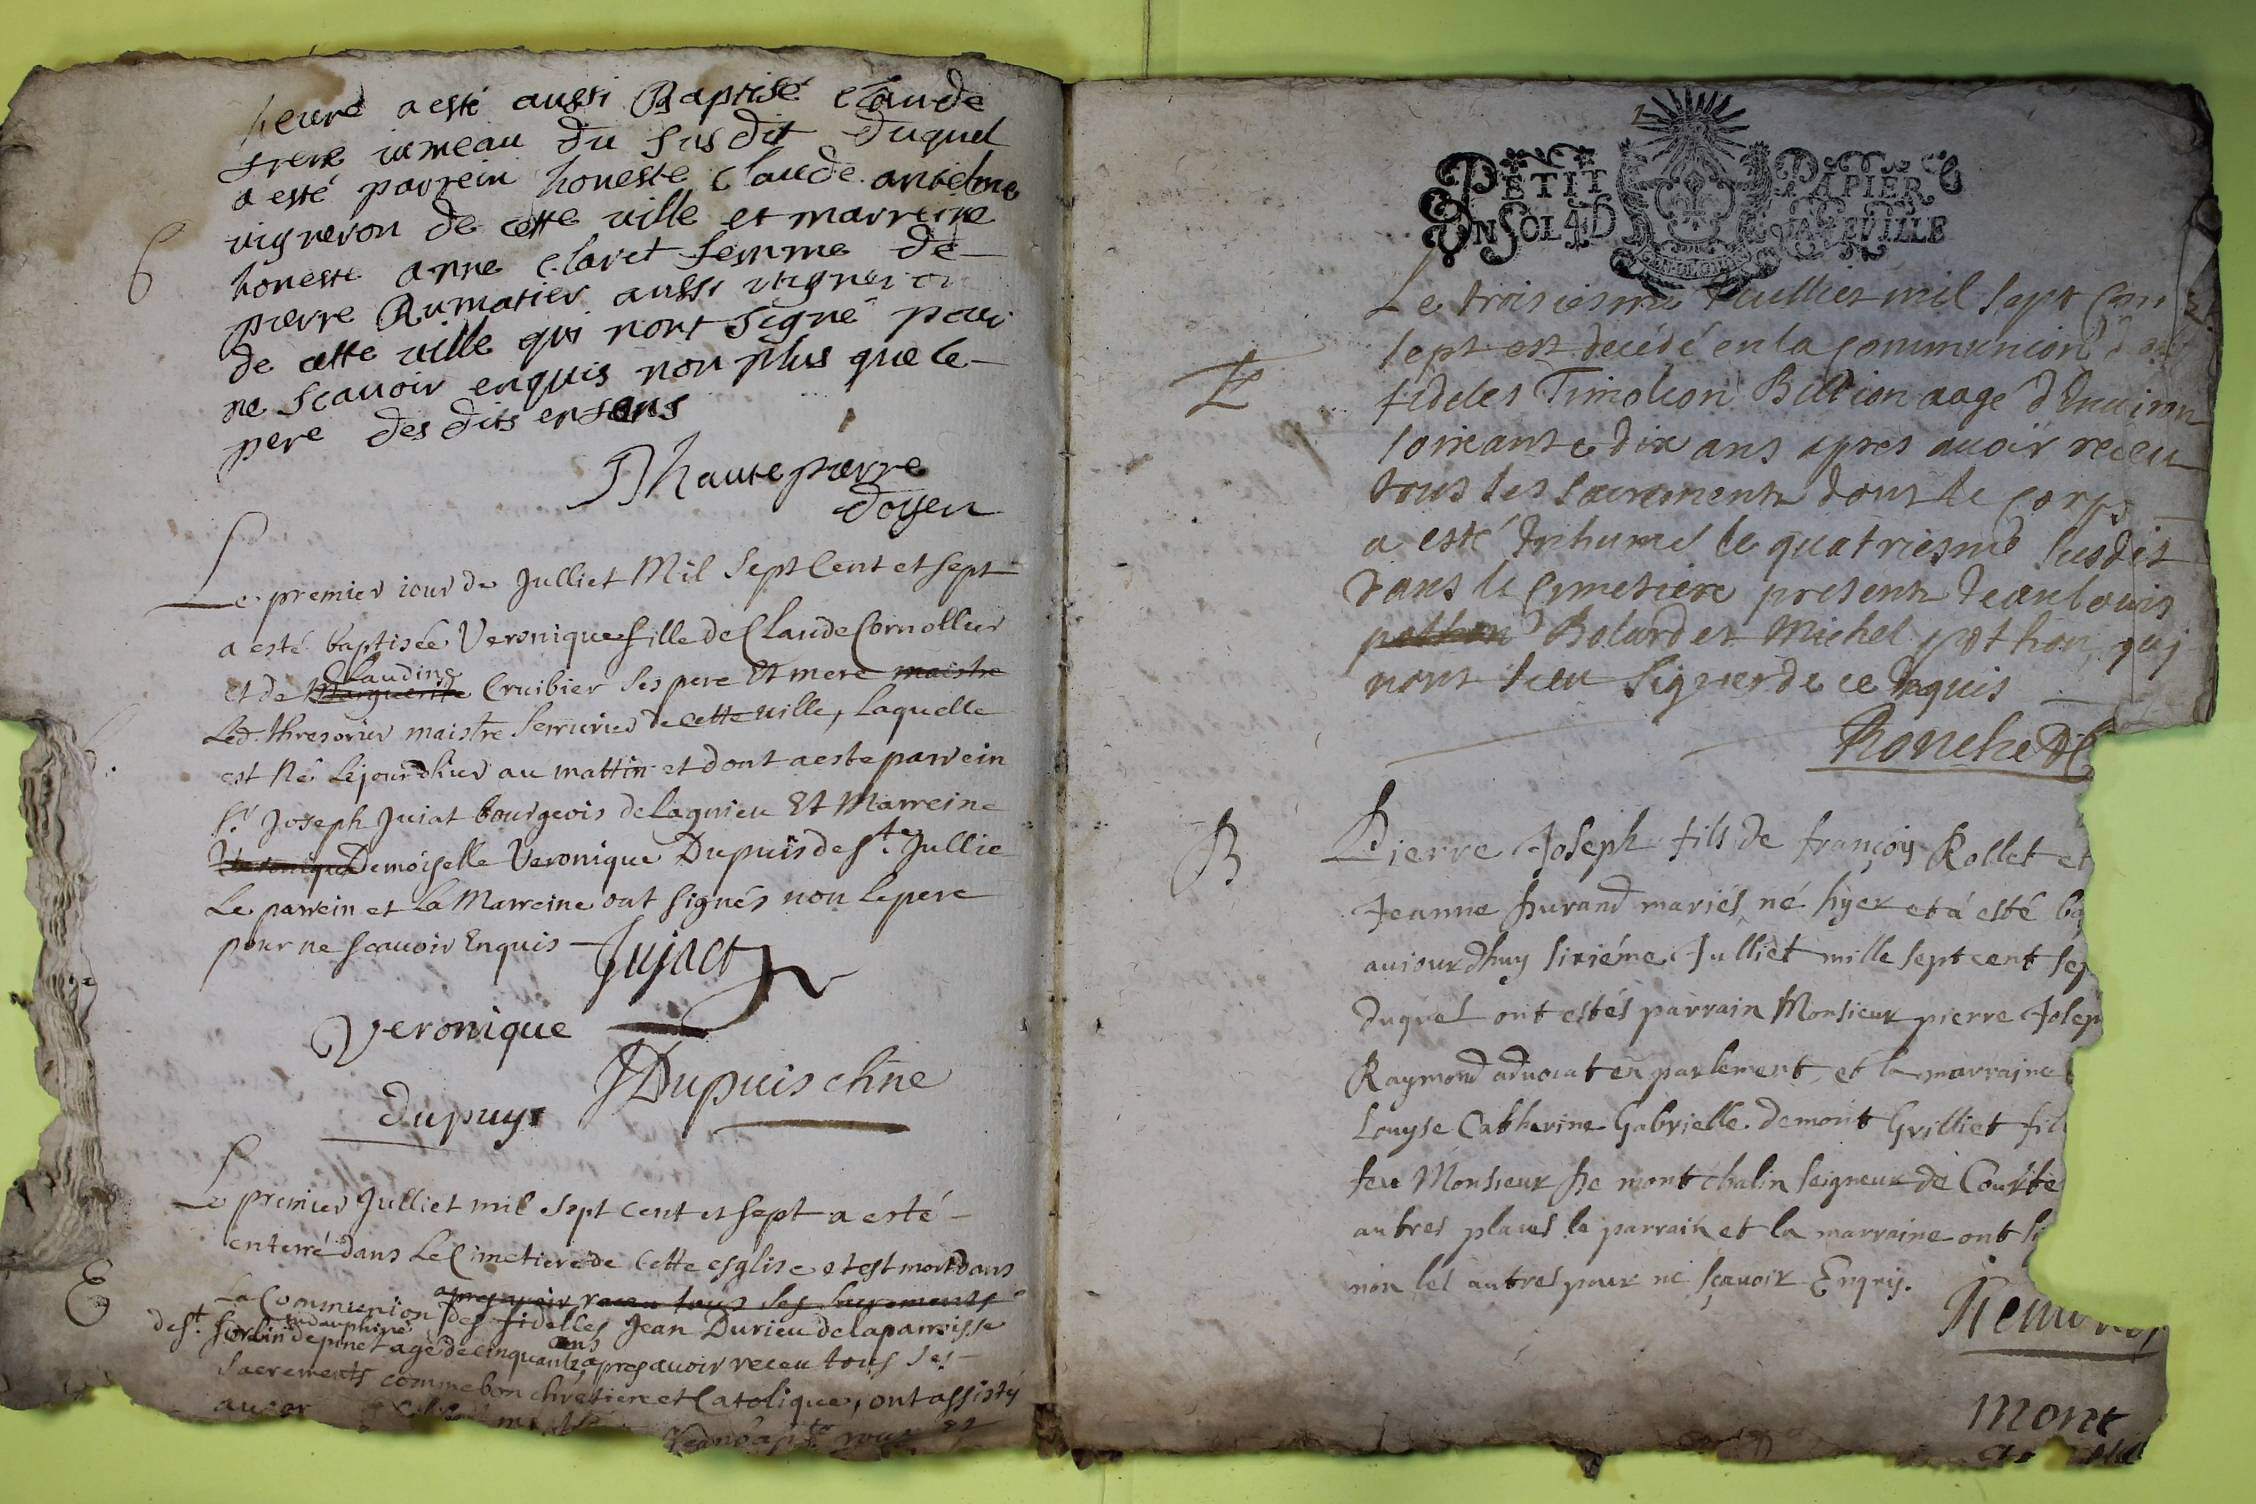 heure a esté aussi Baptisé claude
frere iumeau du susdit duquel
a esté parrein honeste claude antelme
vigneron de cette ville et marreine
honeste anne claret femme de
pierre Rumatier aussi vigneron
de cette ville qui nont signé pour
ne scavoir enquis non plus que le
pere des dits enfans
Dhautepierre
doyen
Le premier iour de Julliet Mil Sept Cent et sept
a esté baptisée Veronique fille de Claude Cornollier
Claudine
et de Marguerite Cruibier ses pere Et mere maistre
Led. thresorier maistre serrurier de cette ville, laquelle
est Né Lejourdhier au mattin et dont a este parrein
Sr. Joseph Juiat bourgeois de lagnieu Et Marreine
Veronique Demoiselle Veronique Dupuis de ste. Jullie
Le parrein et La Marreine ont signés non le pere
pour ne scavoir Enquis
Jujact
Veronique
JDupuis chne
dupuys
Le premier Julliet mil sept cent et sept a esté
enterré dans Le Cimetiere de cette esglise et est mort dans
apres avoir receu tous ses sacrements
La Communion des fidelles Jean Durieu de la parroisse
en dauphiné
de st. Sorlin de pinet agé de cinquante ans apres avoir receu tous ses
Sacrements comme bon chretiere et Catolique, ont assisté
6
E
PETIT PAPIER
UN SOL 4 D LA FEUILLE
Le troisiesme Juilliet mil sept cent
sept est decédé en la communion des
fideles Timoleon Billion aagé d'Environ
soixante dix ans apres avoir receu
tous les sacrements dont le corps
a esté Inhumé le quatriesme susdit
dans le cymetiere presents Jean Louis
pothon Bolard et Michel pothon, quj
nont sceu signer de ce Enquis
Rouched
B
Pierre Joseph fils de françois Rollet et
Jeanne Durand mariés, né hyer et a esté ba
aujourdhuy sixiéme Julliet mille sept cent sep
duquel ont estés parrain Monsieur pierre Josep
Raymond advocat en parlement, et la marraine
Louyse Catherine Gabrielle de mont Grilliet fil
feu Monsieur De mont chalin seigneur de Courte
autres places le parrain et la marraine ont si
non les autres pour ne sçavoir Enquis.
mont